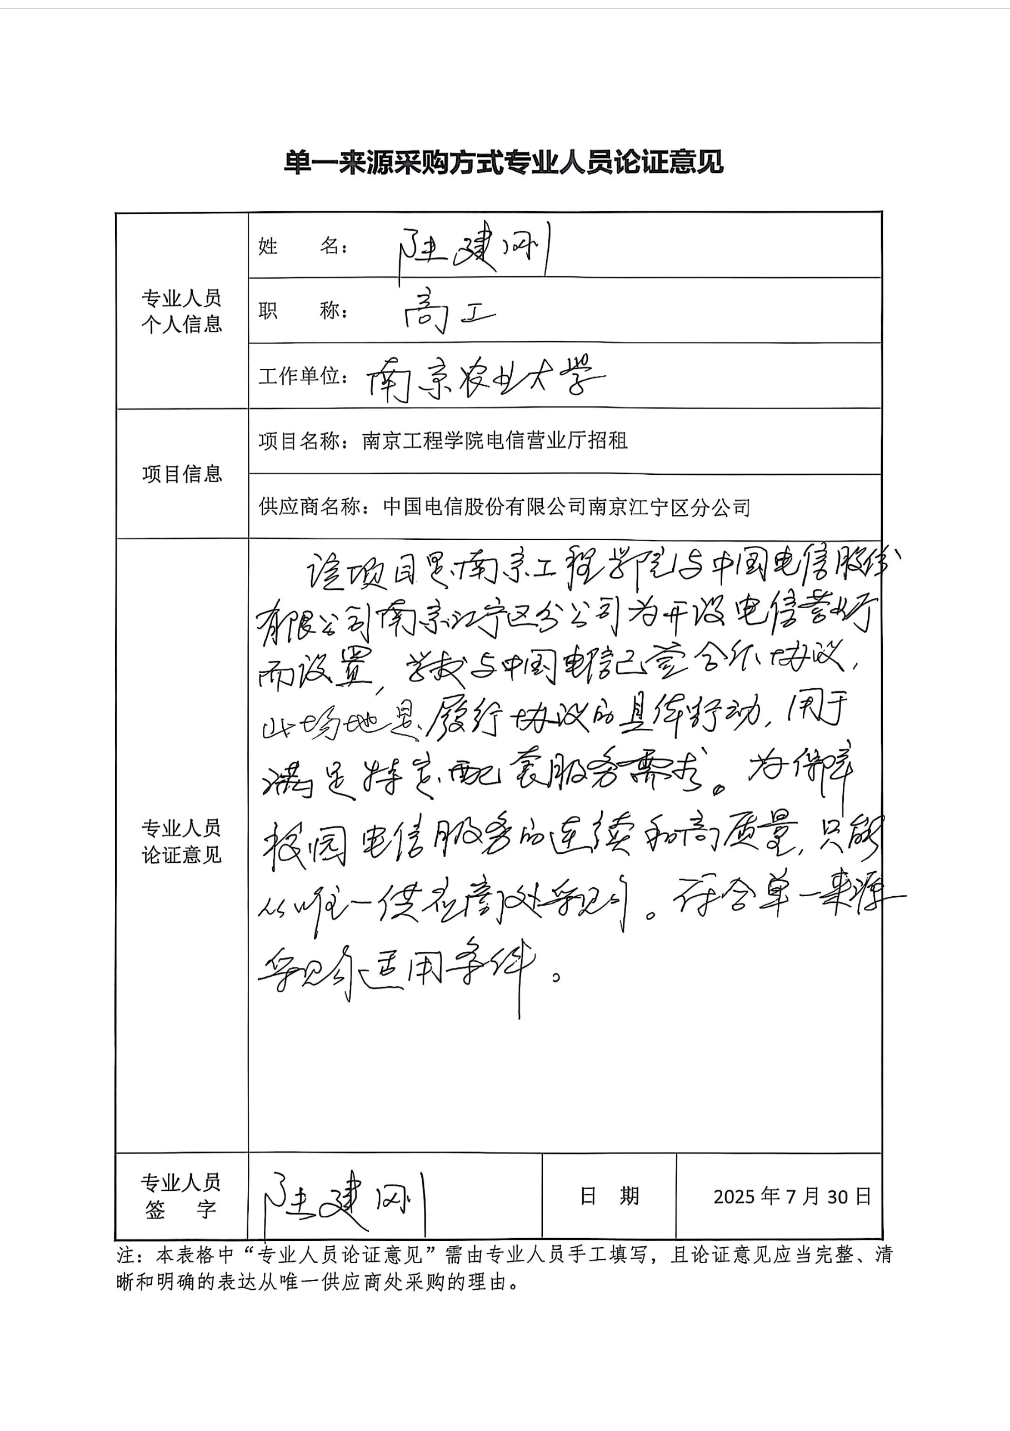 单一来源采购方式专业人员论证意见
专业人员
个人信息
姓 名：陆建刚
职 称：高工
工作单位：南京农业大学
项目信息
项目名称：南京工程学院电信营业厅招租
供应商名称：中国电信股份有限公司南京江宁区分公司
专业人员
论证意见
该项目是南京工程学院与中国电信股份
有限公司南京江宁区分公司为开设电信营业厅
而设置，学校与中国电信已签合作协议，
此场地是履行协议的具体行动，用于
满足特定配套服务需求。为保障
校园电信服务的连续和高质量，只能
从唯一供应商处采购。符合单一来源
采购适用条件。
专业人员
签 字
陆建刚
日 期
2025年7月30日
注：本表格中“专业人员论证意见”需由专业人员手工填写，且论证意见应当完整、清
晰和明确的表达从唯一供应商处采购的理由。